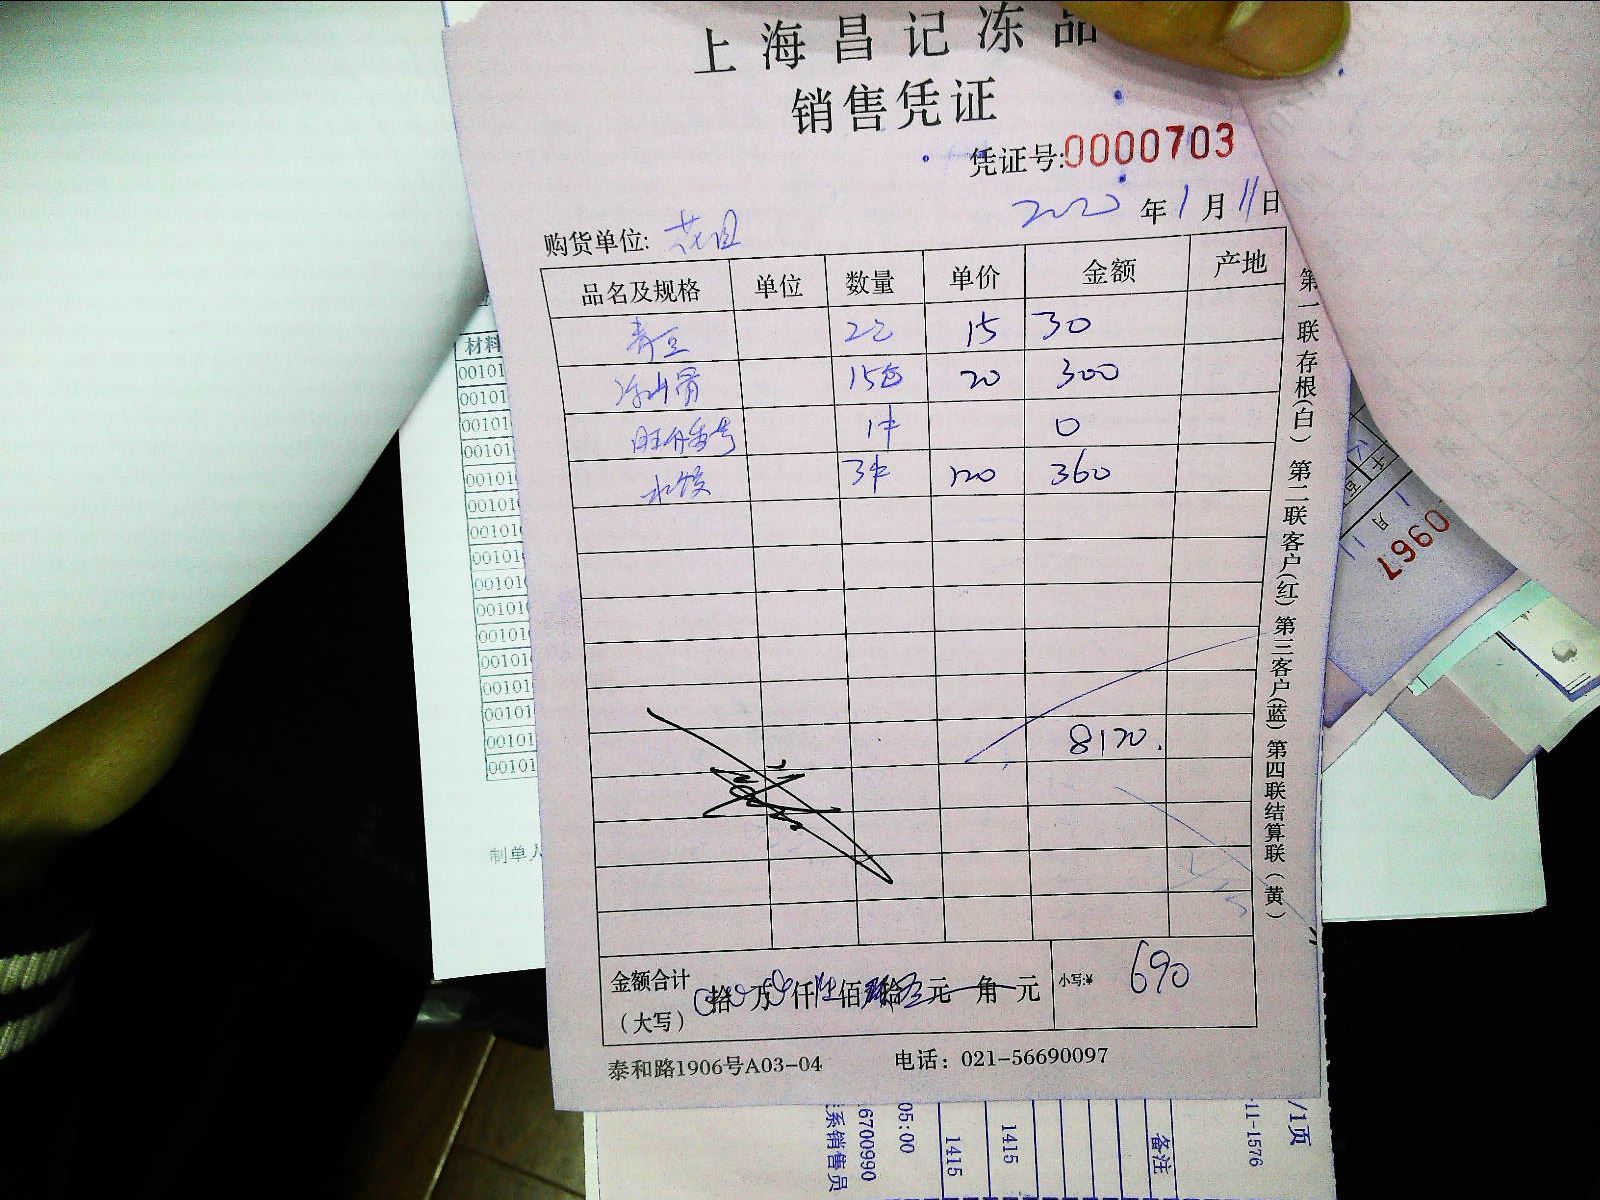 上海昌记冻品
销售凭证
凭证号:0000703
2020 年 1 月 11 日
购货单位:
品名及规格 单位 数量 单价 金额 产地
青豆 15 30
15包 20 300
1件 0
水饺 3件 120 360
8170.
金额合计（大写） 拾 万 仟 佰 拾 元 角 元 小写:¥ 690
泰和路1906号A03-04 电话：021-56690097
第一联存根(白) 第二联客户(红) 第三客户(蓝) 第四联结算联(黄)
材料
00101
00101
00101
00101
00101
00101
00101
00101
00101
00101
00101
00101
00101
00101
00101
00101
制单人
0967
1 月 11
/1页
-11-1576
备注
1415
1415
05:00
6700990
系销售员